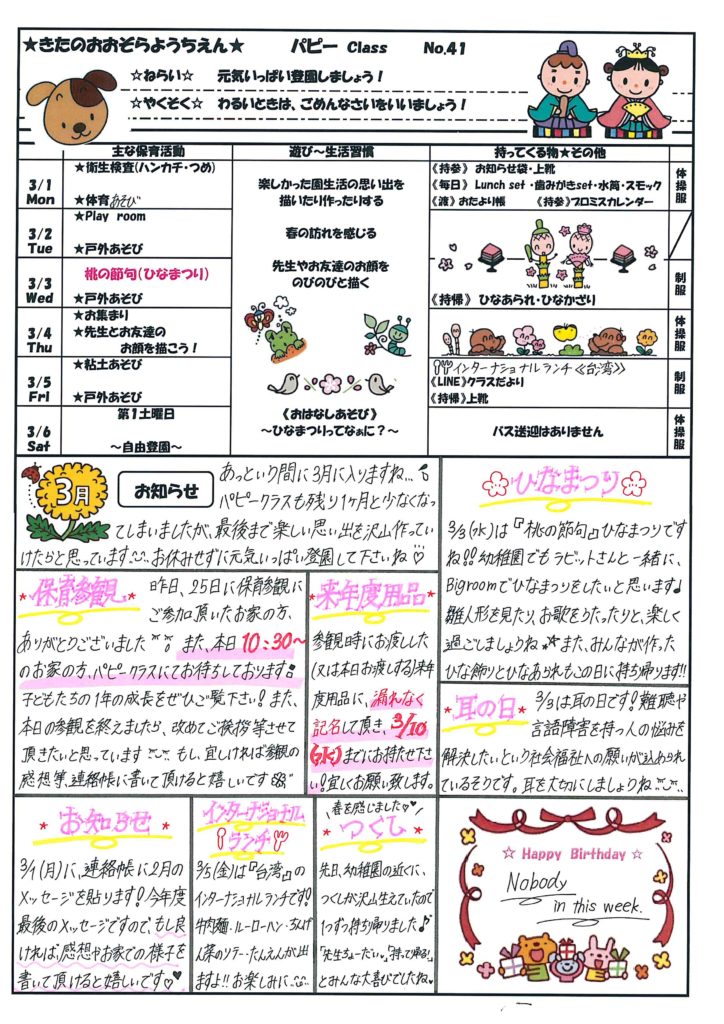 ★きたのおおぞらようちえん★ パピー Class No.41
☆ねらい☆ 元気いっぱい登園しましょう！
☆やくそく☆ わるいときは、ごめんなさいをいいましょう！
主な保育活動 遊び～生活習慣 持ってくる物★その他
3/1
Mon
★衛生検査(ハンカチ・つめ)
★体育あそび
《持参》お知らせ袋・上靴
《毎日》Lunch set・歯みがきset・水筒・スモック
《渡》おたより帳 《持参》プロミスカレンダー
体操服
3/2
Tue
★Play room
★戸外あそび
3/3
Wed
桃の節句(ひなまつり)
★戸外あそび
《持帰》ひなあられ・ひなかざり
制服
3/4
Thu
★お集まり
★先生とお友達の
お顔を描こう！
体操服
3/5
Fri
★粘土あそび
★戸外あそび
インターナショナルランチ《台湾》
《LINE》クラスだより
《持帰》上靴
制服
3/6
Sat
第１土曜日
～自由登園～
バス送迎はありません
体操服
楽しかった園生活の思い出を
描いたり作ったりする
春の訪れを感じる
先生やお友達のお顔を
のびのびと描く
《おはなしあそび》
～ひなまつりってなぁに？～
3月
お知らせ
あっという間に3月に入りますね…
パピークラスも残り1ヶ月と少なくなっ
てしまいましたが、最後まで楽しい思い出を沢山作ってい
けたらと思っています。お休みせずに元気いっぱい登園して下さいね♡
ひなまつり
3/3(水)は『桃の節句』ひなまつりです
ね!!幼稚園でもラビットさんと一緒に、
Bigroomでひなまつりをしたいと思います♪
雛人形を見たり、お歌をうたったりと、楽しく
過ごしましょうね☆★また、みんなが作った
ひな飾りとひなあられもこの日に持ち帰ります!!
★保育参観★
昨日、25日に保育参観に
ご参加頂いたお家の方、
ありがとうございました また、本日10:30～
のお家の方、パピークラスにてお待ちしております!
子どもたちの1年の成長をぜひご覧下さい！また、
本日の参観を終えましたら、改めてご挨拶等させて
頂きたいと思っています もし、宜しければ参観の
感想等、連絡帳に書いて頂けると嬉しいです
★来年度用品★
参観時にお渡しした
(又は本日お渡しする)来年
度用品に、漏れなく
記名して頂き、3/10
(水)までにお持たせ下さ
い！宜しくお願い致します。
★耳の日★
3/3は耳の日です！難聴や
言語障害を持つ人の悩みを
解決したいという社会福祉への願いが込められ
ているそうです。耳を大切にしましょうね
★お知らせ★
3/1(月)に、連絡帳に2月の
メッセージを貼ります！今年度
最後のメッセージですので、もし良
ければ、感想やお家での様子を
書いて頂けると嬉しいです♡♥
インターナショナル
ランチ
3/5(金)は『台湾』の
インターナショナルランチです！
牛肉麺・ルーローハン・ちんげ
ん菜のソテー・たんえんが出
ますよ!!お楽しみに
春を感じました♡♥
★つくし★
先日、幼稚園の近くに、
つくしが沢山生えていたので
1つずつ持ち帰りました♪
「先生ちょーだい」、「持って帰る!」
とみんな大喜びでしたね♥
☆ Happy Birthday ☆
Nobody
in this week.